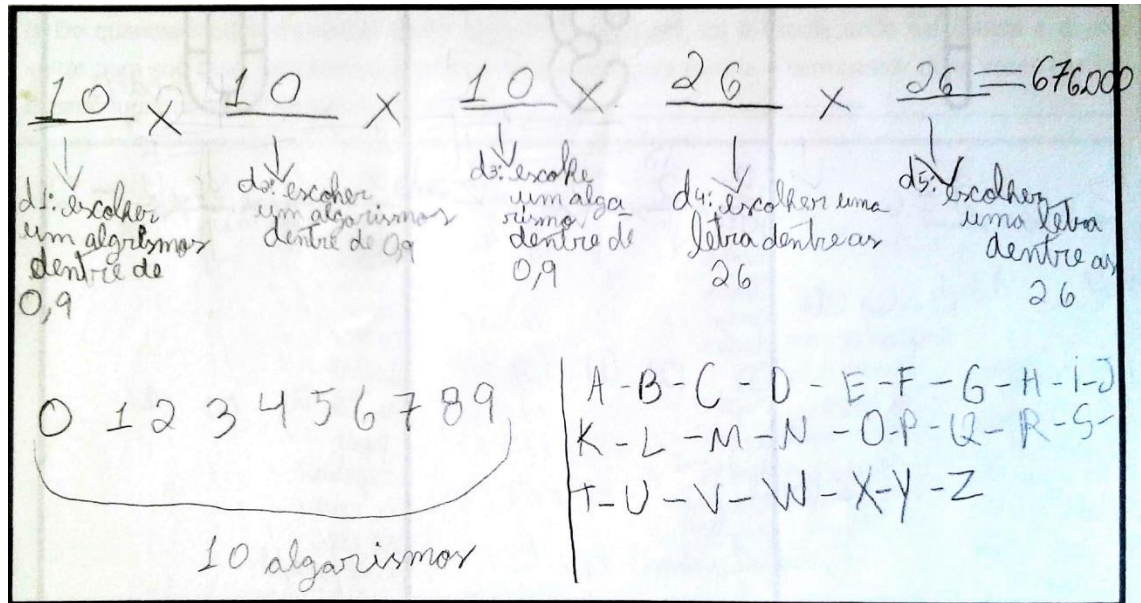 10 x 10 x 10 x 26 x 26 = 676.000
d1: escolher
um algrismos
dentre de
0,9
d2: escoher
um algarismos
dentre de 0,9
d3: escolhe
um alga
rismo
dentre de
0,9
d4: escolher uma
letra dentre as
26
d5: escolher
uma letra
dentre as
26
0 1 2 3 4 5 6 7 8 9
10 algarismos
A - B - C - D - E - F - G - H - i - J
K - L - M - N - O - P - Q - R - S -
T - U - V - W - X - Y - Z